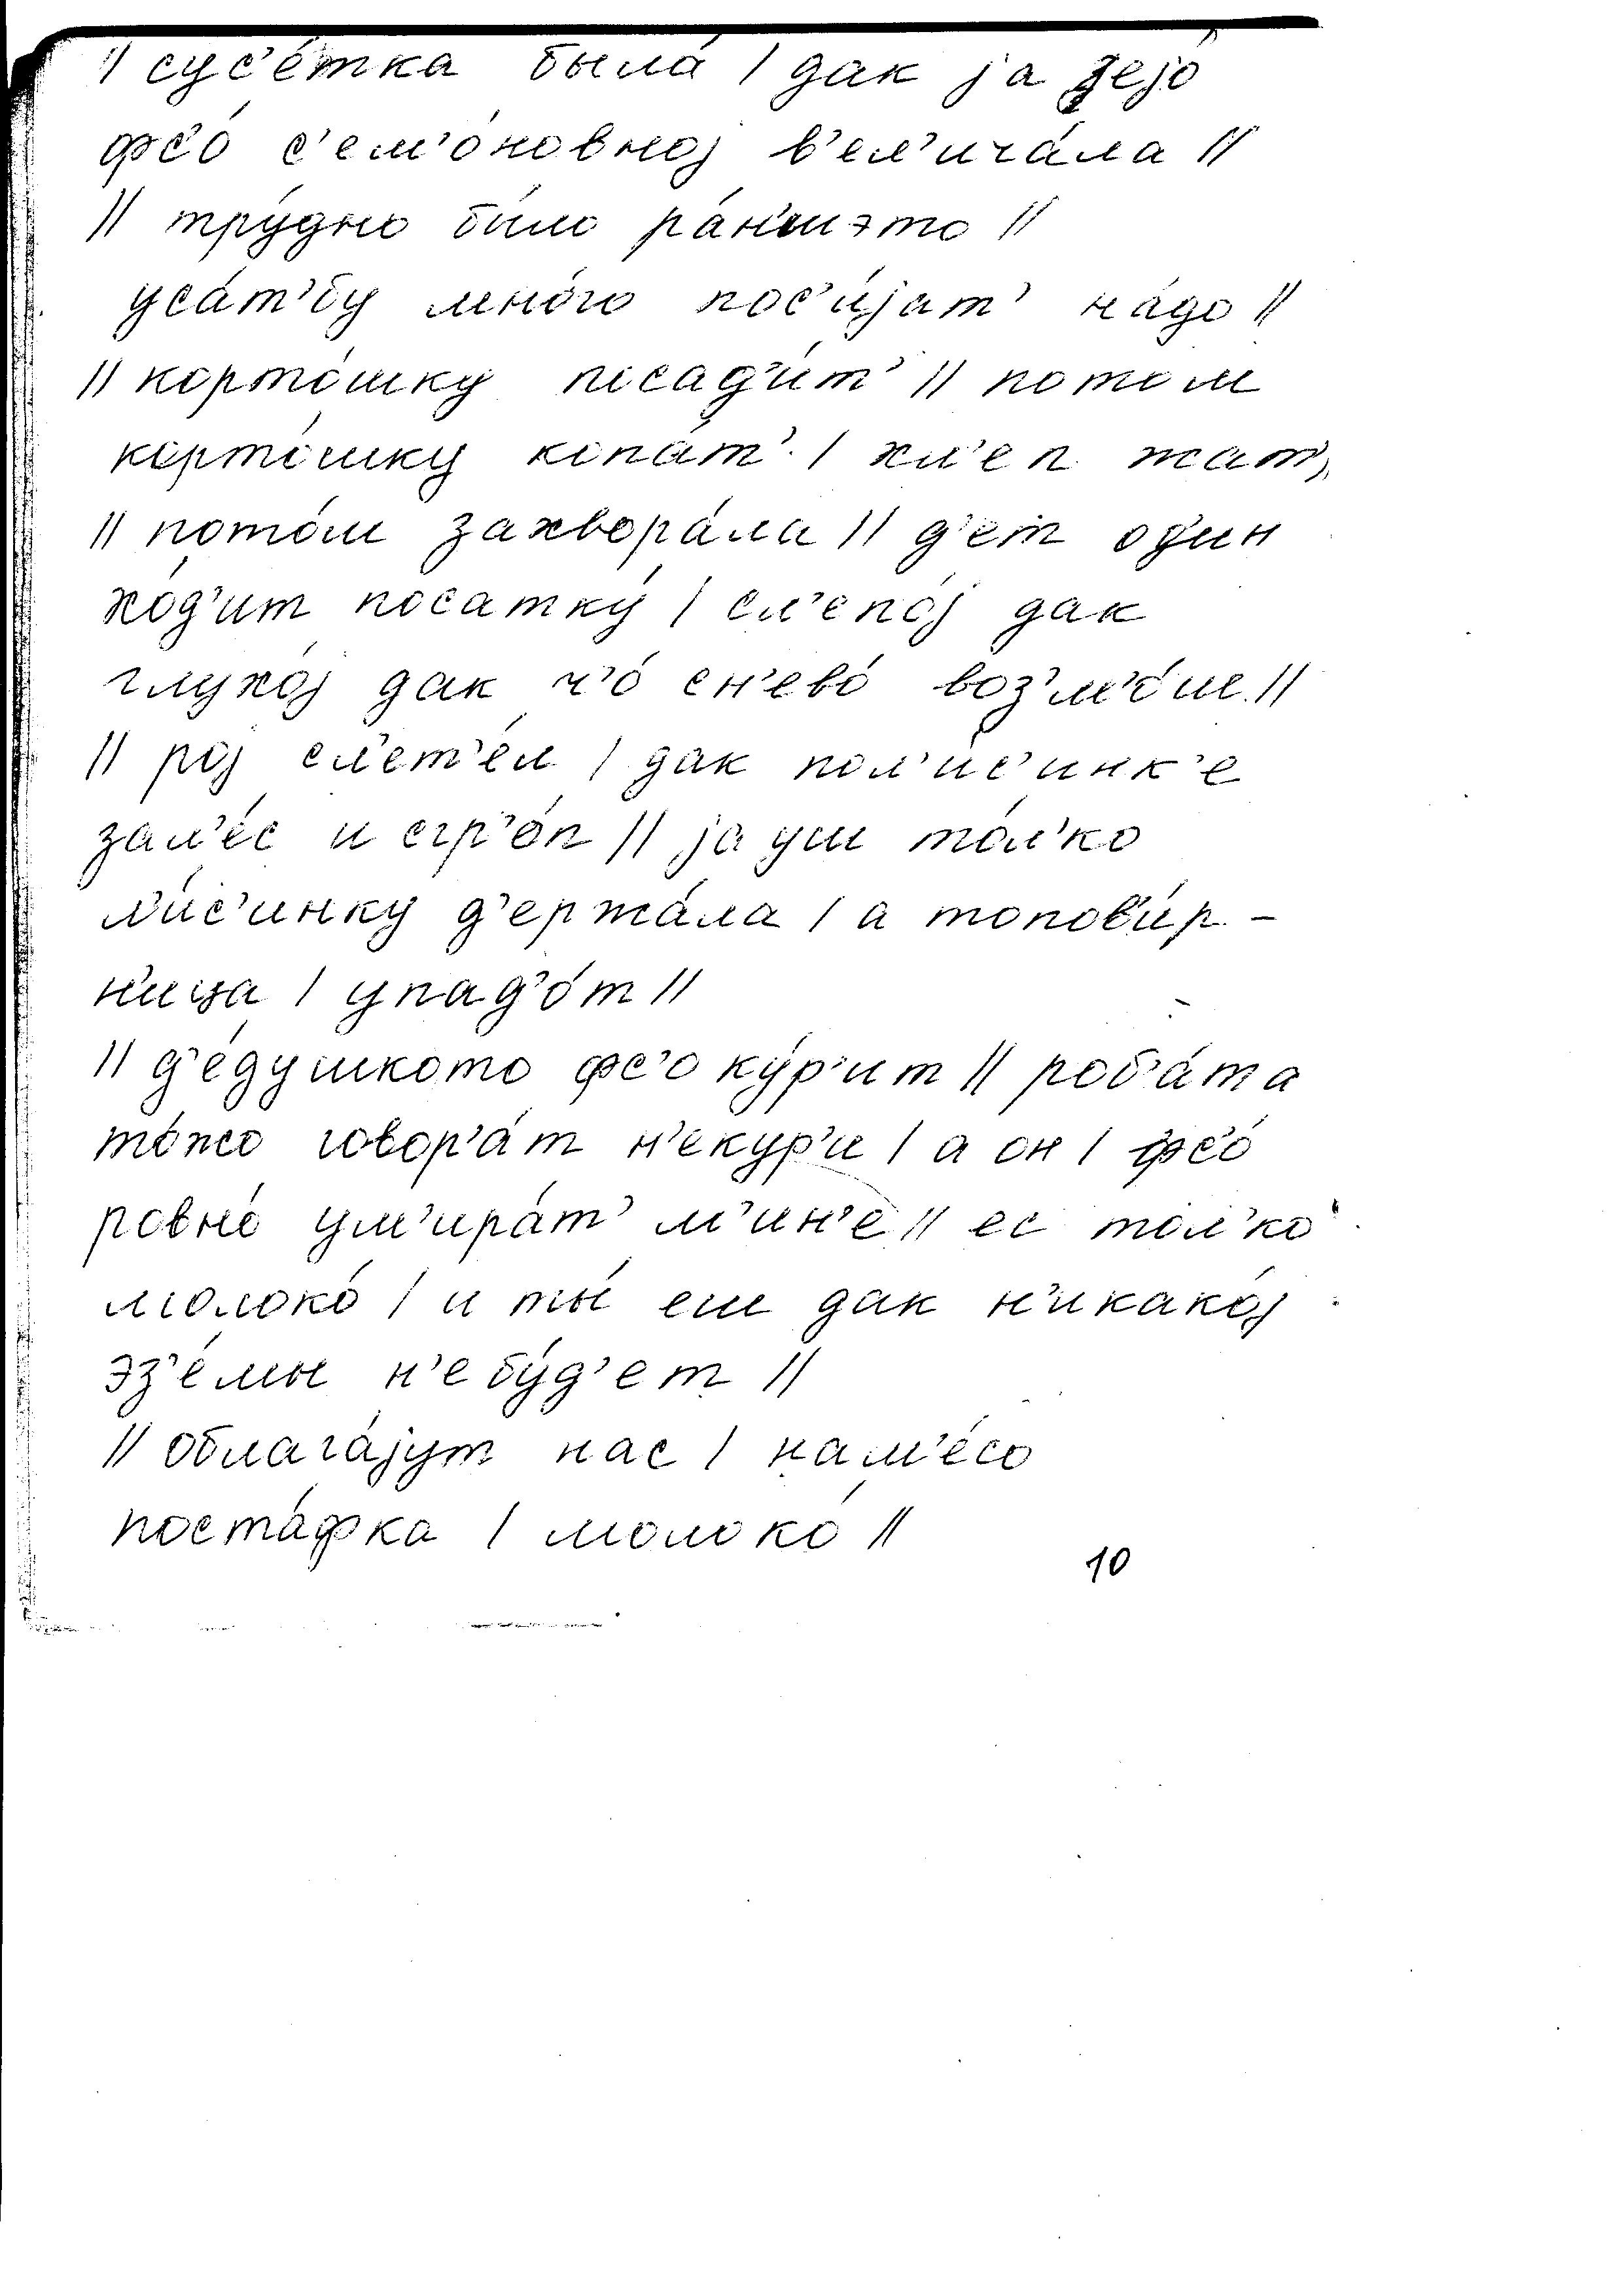 | сус'е́тка была́ | дак jа jejо́
фс'о́ с'ем'о́новноj в'ел'ича́ла ||
|| тру́дно бы́ло ра́н'шэто ||
уса́т'бу мно́го пос'и́jат' на́до ||
|| корто́шку посад'и́т' || потом
корто́шку копа́т' | хл'еп жат'
|| пото́м захвора́ла || д'ет од'ин
хо́д'ит посатку́ | сл'епо́j дак
глухо́j дак ч'о́ сн'ево́ воз'м'о́ш ||
|| роj сл'ет'е́л | дак пол'ис'инк'е
зал'е́с и сгр'о́п || jа уш то́л'ко
л'и́с'инку д'ержа́ла | а топов'и́р-
н'ица | упад'о́т ||
|| д'е́душкото фс'о ку́р'ит || роб'а́та
то́жо говор'а́т н'екур'и | а он | фс'о́
ровно́ ум'ира́т' м'ин'е || ес то́л'ко
молоко́ | и ты́ еш дак н'икако́j
эз'е́мы н'ебу́д'ет ||
|| облага́jут нас | нам'е́со
поста́фка | молоко́ ||
10